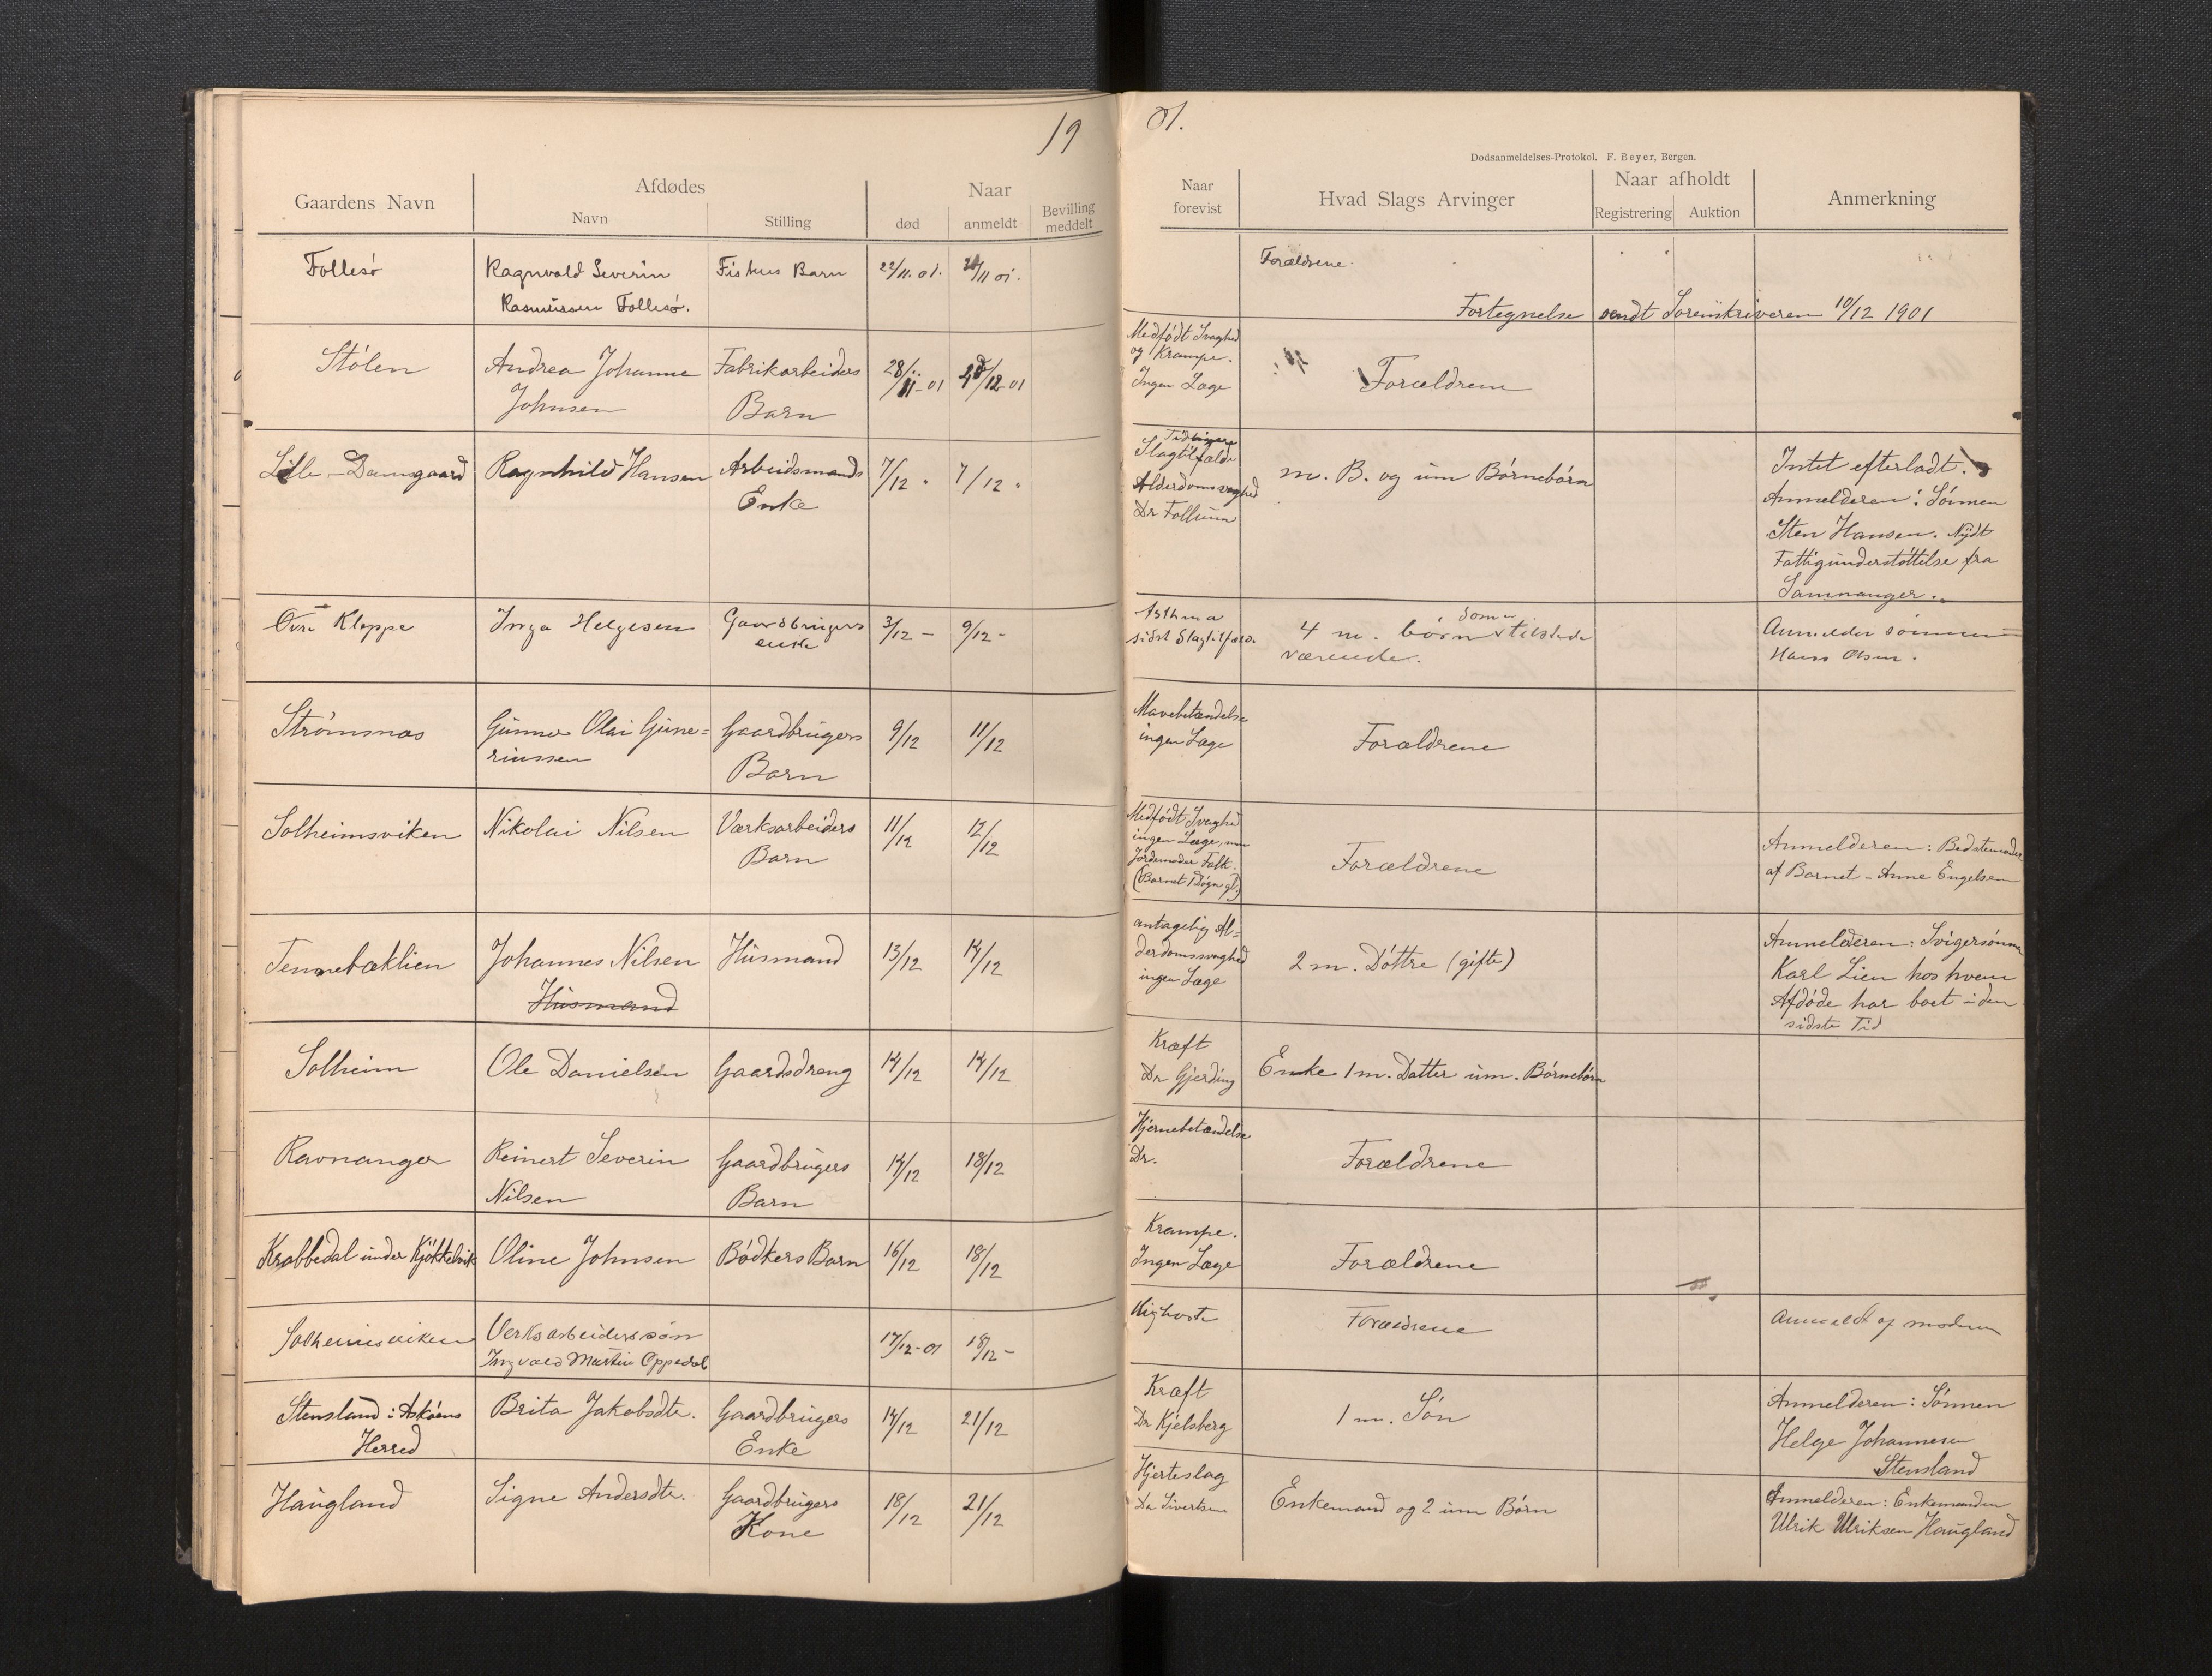 19
01.
Dødsanmeldelses-Protokol. F. Beyer, Bergen.
Gaardens Navn
Afdødes
Navn
Stilling
Naar
død
anmeldt
Bevilling
meddelt
Naar
forevist
Hvad Slags Arvinger
Naar afholdt
Registrering
Auktion
Anmerkning
Follesø Ragnvald Severin Fiskers Barn 22/11.01. /11 01. Forældrene.
Rasmussen Follesø.
Fortegnelse sendt Sorenskriveren 10/12 1901
Stølen Andrea Johanne Fabrikarbeiders 28/11-01 /12-01 Medfødt Svaghed Forældrene
Johnsen Barn og Krampe.
Ingen Læge
Lille-Damsgaard Ragnhild Hansen Arbeidsmands 7/12 " 7/12 " Tidligere m. B. og um Børnebørn Intet efterladt.
Enke Slagtilfælde Anmelderen: Sønnen
Alderdomsvaghed Sten Hansen. Nydt
Dr Follum Fattigunderstøttelse fra
Samnanger.
Øvre Kleppe Inga Helgesen Gaardbrugers 3/12 - 9/12 - Asthma 4 m. børn som tilstede Anmelder sønnen
enke sidst Slagtilfæld. værende. Hans Olsen.
Strømsnæs Gunnar Olai Gune= Gaardbrugers 9/12 11/12 Mavebetændelse Forældrene
riussen Barn ingen Læge
Solheimsviken Nikolai Nilsen Værksarbeiders 11/12 12/12 Medfødt Svaghed Forældrene Anmelderen: Bedstemoder
Barn ingen Læge, men af Barnet - Anne Engelsen
Jordemoder Falk.
(Barnet 1 Døgn gl.)
Tennebæklien Johannes Nilsen Husmand 13/12 14/12 antagelig Al= 2 m. Døttre (gifte) Anmelderen: Svigersønnen
Husmand derdomssvaghed Karl Lien hos hvem
ingen Læge Afdøde har boet i den
sidste Tid
Solheim Ole Danielsen Gaardsdreng 14/12 14/12 Kræft Enke 1 m. Datter um. Børnebørn
Dr Gjerding
Ravnanger Reinert Severin Gaardbrugers 14/12 18/12 Hjernebetændelse Forældrene
Nilsen Barn Dr.
Krabbedal under Kjøkkelvik Oline Johnsen Bødkers Barn 16/12 18/12 Krampe. Forældrene
Ingen Læge
Solheimsviken Verksarbeiderssøn 17/12-01 18/12 - Kighoste Forældrene Anmeldt af moderen
Ingvald Martin Oppedal
Stensland i Askøens Brita Jakobsdtr. Gaardbrugers 14/12 21/12 Kræft 1 m. Søn Anmelderen: Sønnen
Herred Enke Dr Kjelsberg Helge Johannesen
Stensland
Haugland Signe Andersdtr. Gaardbrugers 18/12 21/12 Hjerteslag Enkemand og 2 um Børn Anmelderen: Enkemanden
Kone Dr Sivertsen Ulrik Ulriksen Haugland